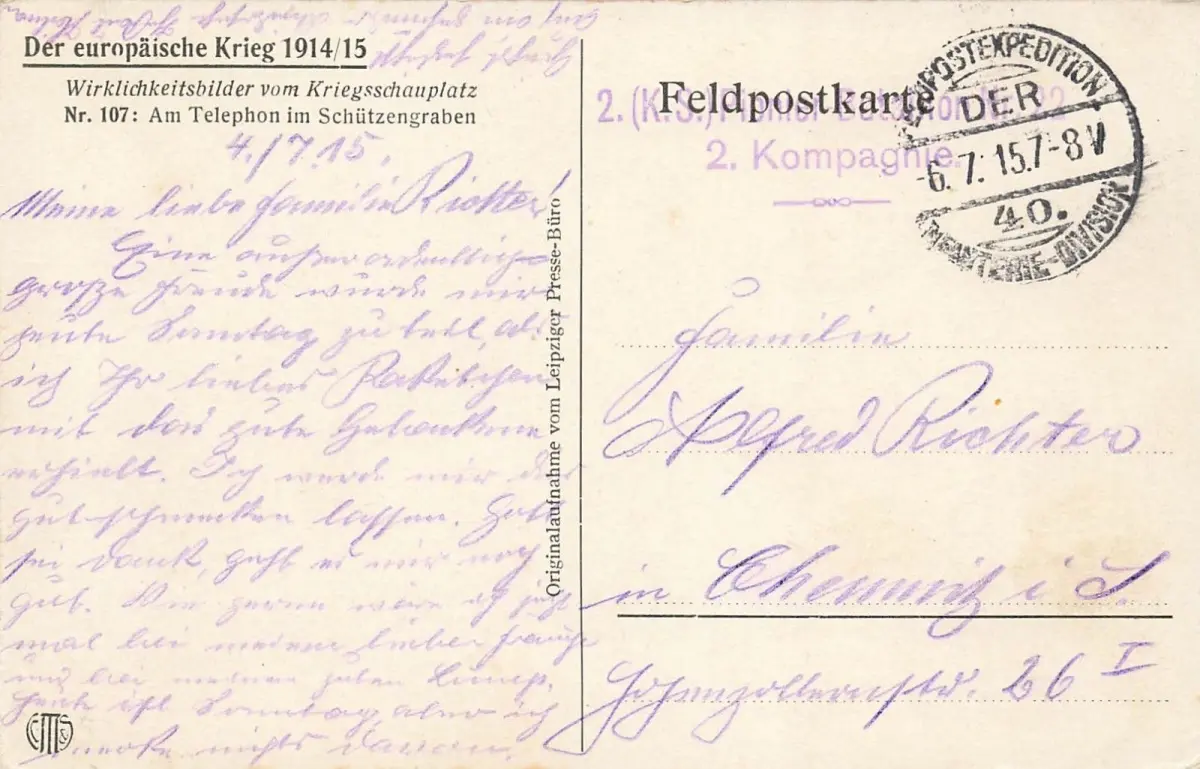 Der europäische Krieg 1914/15
Wirklichkeitsbilder vom Kriegsschauplatz
Nr. 107: Am Telephon im Schützengraben
4./7.15.
Meine liebe Familie Richter!
Eine außerordentlich
große Freude wurde mir
heute Sonntag zu teil, als
ich Ihr liebes Paketchen
mit das gute
erhielt. Ich werde mir
gut schmecken lassen. Gott
sei dank, geht es mir noch
gut. Wie gerne wäre ich jetzt
mal bei meiner lieben
und bei meinen guten
Heute ist Sonntag, aber ich
merke nichts davon.
Originalaufnahme vom Leipziger Presse-Büro
Feldpostkarte
2. (K.S.) Pionier-Bataillon Nr. 22
2. Kompagnie.
FELDPOSTEXPEDITION
DER
-6.7.15.7-8V
40.
INFANTERIE-DIVISION
Familie
Alfred Richter
in Chemnitz i S.
Hohenzollernstr. 26 I